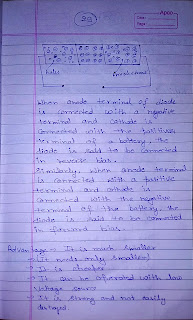 29
Date
Page
Holes
Electrons
When anode terminal of diode
is connected with a negative
terminal and cathode is
connected with the positive
terminal of a battery, the
diode is said to be connected
in reverse bias.
Similarly, when anode terminal
is connected with a positive
terminal and cathode is
connected with the negative
terminal of the battery, the
diode is said to be connected
in forward bias.
Advantage - It is much smaller
→ It needs only smaller
→ It is cheaper
→ It can be operated with low
voltage source
→ It is strong and not easily